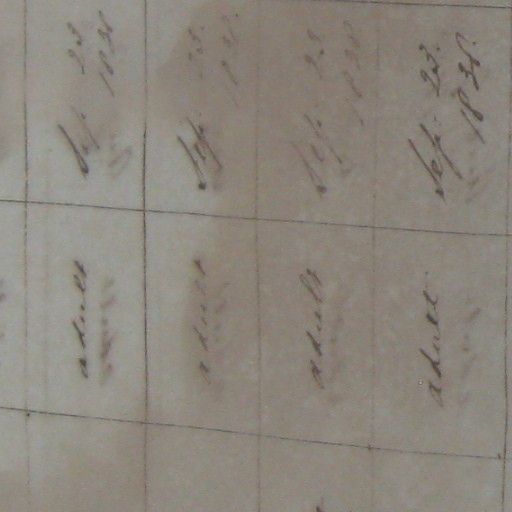 adult Sep. 23
1838
adult Sep. 23.
1838.
adult Sep. 23
1838
adult Sep. 23.
1838.